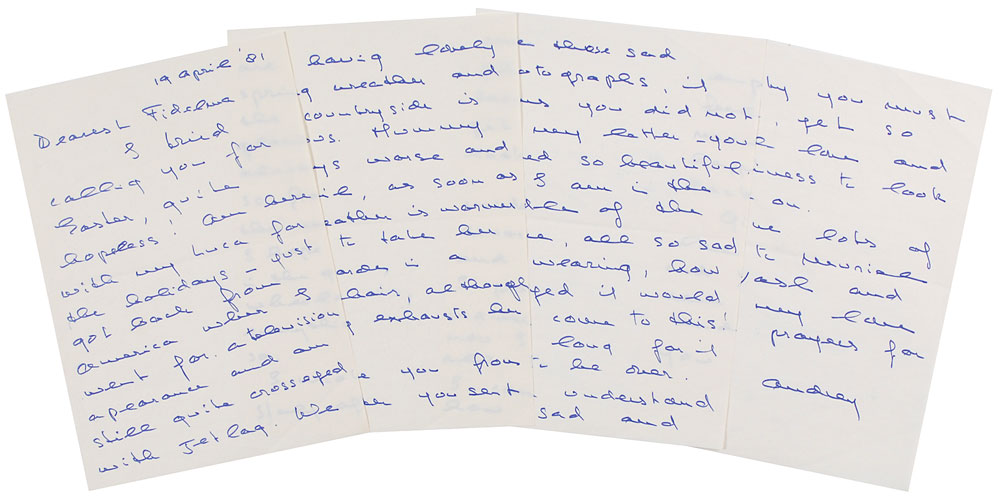 19 april '81
Dearest Fidelma
I tried
calling you for
Easter, quite
hopeless! Am here
with my Luca for
the holidays – just
got back from
america where I
went for a television
apearance and am
still quite crosseyed
with Jetlag. We
having lovely
g weather and
countryside is
us. Mummy
ys worse and
il, as soon as
eather is warmer
to take her
arden in a
hair, although
g exhausts her
e you from
er you sent
e those sad
otographs, it
us you did not
my father – your
ed so beautiful
I am in the
ble of the
e, all so sad
wearing, how
ged it would
come to this!
long for it
to be over.
understand
sad and
hy you must
, get so
love and
iness to look
on.
ve lots of
to
ash and
my love
prayers for
Audrey